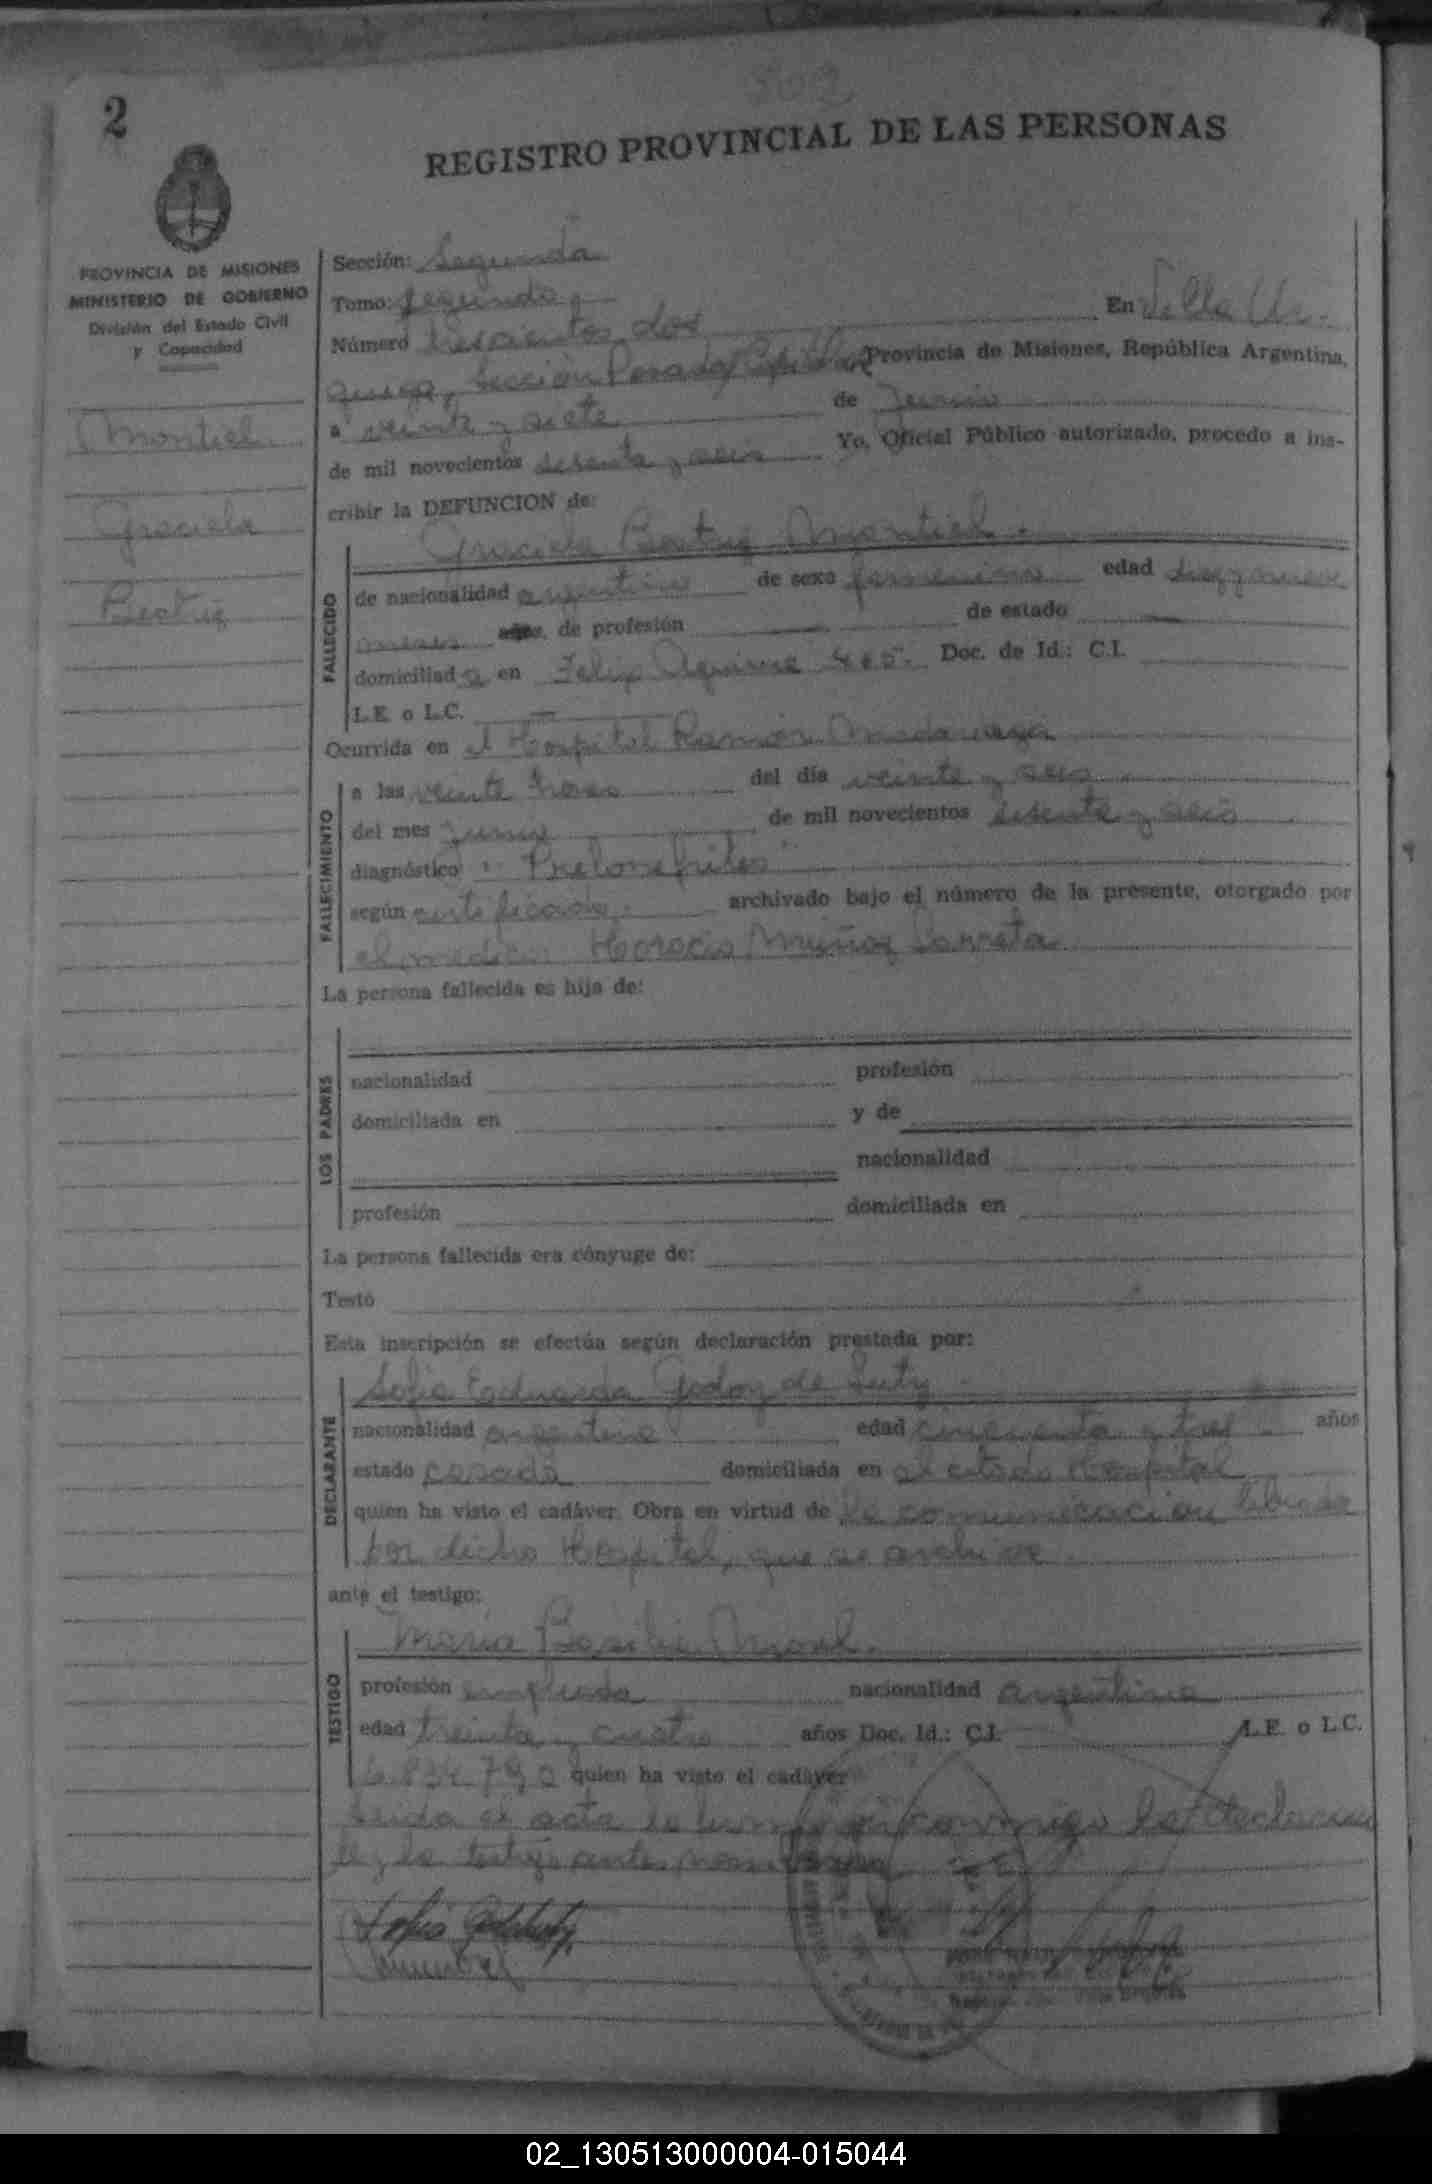 302
2
REGISTRO PROVINCIAL DE LAS PERSONAS
PROVINCIA DE MISIONES
MINISTERIO DE GOBIERNO
División del Estado Civil
y Capacidad
Montiel
Graciela
Beatriz
Sección: Segunda
Tomo: segundo
Número trescientos dos En Villa Ur-
quiza, Sección Posadas Capital Provincia de Misiones, República Argentina,
a veinte y siete de Junio
de mil novecientos sesenta y seis Yo, Oficial Público autorizado, procedo a ins-
cribir la DEFUNCION de:
Graciela Beatriz Montiel.
FALLECIDO
de nacionalidad argentina de sexo femenino edad diez y nueve
meses años, de profesión — de estado —
domiciliada en Felix Aguirre Doc. de Id.: C.I.
L.E. o L.C. —
Ocurrida en el Hospital Ramón Madariaga
FALLECIMIENTO
a las veinte horas del día veinte y seis
del mes Junio de mil novecientos sesenta y seis
diagnóstico: "Pielonefritis"
según certificado archivado bajo el número de la presente, otorgado por
el médico Horacio Muñoz Larreta
La persona fallecida es hija de:
LOS PADRES
nacionalidad profesión
domiciliada en y de
nacionalidad
profesión domiciliada en
La persona fallecida era cónyuge de:
Testó
Esta inscripción se efectúa según declaración prestada por:
DECLARANTE
Sofia Eduarda Godoy de
nacionalidad argentina edad cincuenta y tres años
estado casada domiciliada en el citado Hospital
quien ha visto el cadáver. Obra en virtud de la comunicación librada
por dicho Hospital, que se archiva.
ante el testigo:
TESTIGO
María Basilia
profesión empleada nacionalidad argentina
edad treinta y cuatro años Doc. Id.: C.I. L.E. o L.C.
quien ha visto el cadáver
Leida el acta la firman conmigo la declaran
te y la testigo antes
02_130513000004-015044